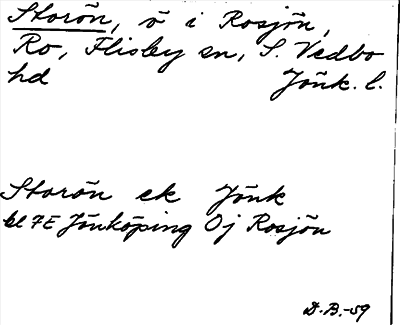 Storön, ö i Rosjön,
Ro, Flisby sn, S. Vedbo
hd Jönk. l.
Storön ek Jönk
bl 7E Jönköping Öj Rosjön
D.B.-59